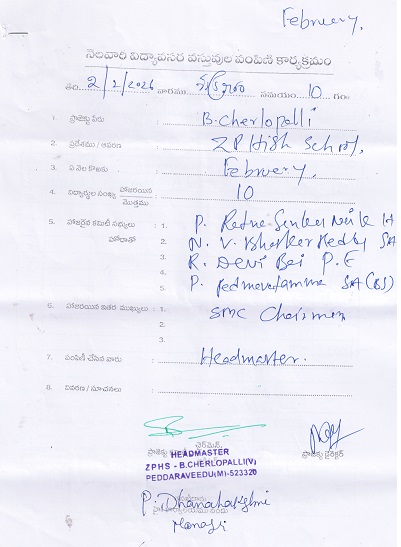 February,
నెలవారి విద్యావసర వస్తువుల పంపిణి కార్యక్రమం
తేది 2/2/2026 వారము సమయం 10 గం॥
1. ప్రాజెక్టు పేరు : B. Cherlopalli
2. ప్రదేశము / ఆవరణ : ZP High School,
3. ఏ నెల కొఱకు : February,
4. విద్యార్థుల సంఖ్య హాజరయిన మొత్తము : 10
5. హాజరైన కమిటీ సభ్యులు హోదాతో : 1. P. Ratna Sankar Naik H
2. N. V. Bhasker Reddy SA
3. R. Devi Bai P.E
4. P. Padmavathamma SA (BS)
5.
6. హాజరయిన ఇతర ముఖ్యులు : 1. SMC Chairmen
2.
3.
7. పంపిణీ చేసిన వారు : Headmaster.
8. వివరణ / సూచనలు :
ఛైర్మెన్,
HEADMASTER
ZPHS - B.CHERLOPALLI(V)
PEDDARAVEEDU(M)-523320
ప్రాజెక్టు డైరెక్టర్
P. Dhanalakshmi